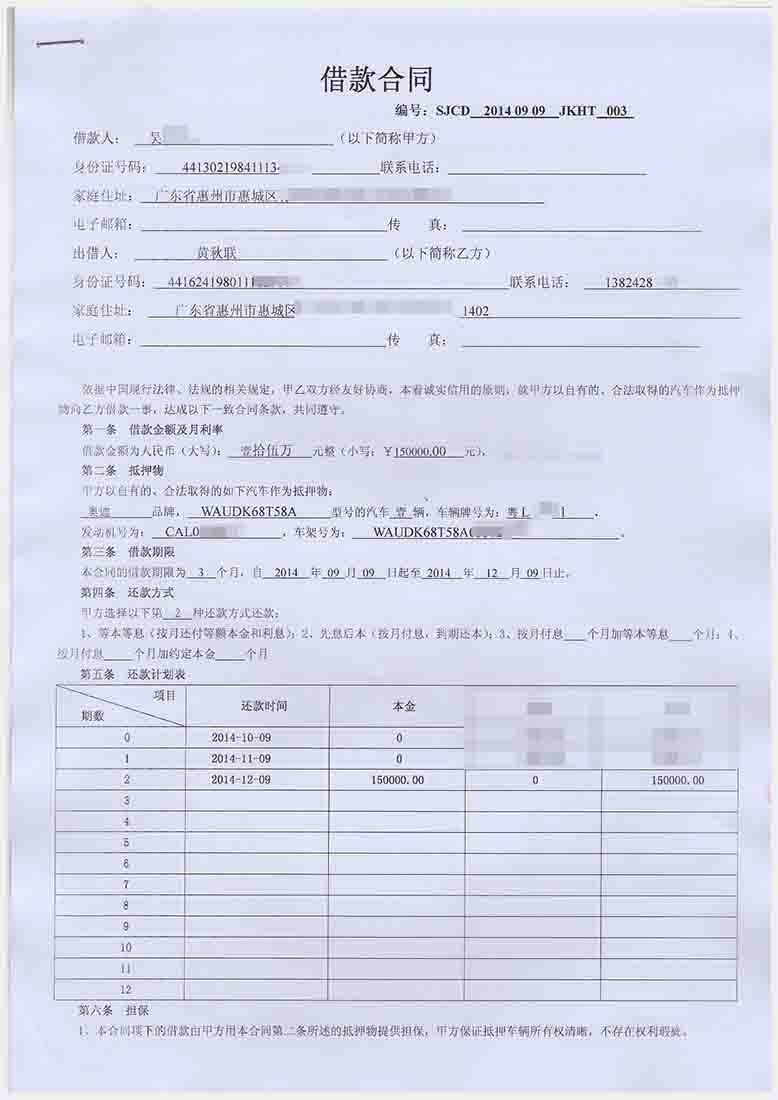 借款合同
编号：SJCD 2014 09 09 JKHT 003
借款人： 吴 （以下简称甲方）
身份证号码： 44130219841113 联系电话：
家庭住址： 广东省惠州市惠城区
电子邮箱： 传 真：
出借人： 黄秋联 （以下简称乙方）
身份证号码： 4416241980111 联系电话： 1382428
家庭住址： 广东省惠州市惠城区 1402
电子邮箱： 传 真：
依据中国现行法律、法规的相关规定，甲乙双方经友好协商，本着诚实信用的原则，就甲方以自有的、合法取得的汽车作为抵押
物向乙方借款一事，达成以下一致合同条款，共同遵守。
第一条 借款金额及月利率
借款金额为人民币（大写）： 壹拾伍万 元整（小写：￥150000.00 元），
第二条 抵押物
甲方以自有的、合法取得的如下汽车作为抵押物：
奥迪 品牌， WAUDK68T58A 型号的汽车 壹 辆，车辆牌号为：粤L 1 ，
发动机号为： CAL0 ，车架号为： WAUDK68T58A 。
第三条 借款期限
本合同的借款期限为 3 个月，自 2014 年 09 月 09 日起至 2014 年 12 月 09 日止。
第四条 还款方式
甲方选择以下第 2 种还款方式还款：
1、等本等息（按月还付等额本金和利息）；2、先息后本（按月付息，到期还本）；3、按月付息___个月加等本等息___个月；4、
按月付息____个月加约定本金____个月
第五条 还款计划表
项目
期数 还款时间 本金
0 2014-10-09 0
1 2014-11-09 0
2 2014-12-09 150000.00 0 150000.00
3
4
5
6
7
8
9
10
11
12
第六条 担保
1、本合同项下的借款由甲方用本合同第二条所述的抵押物提供担保，甲方保证抵押车辆所有权清晰，不存在权利瑕疵。